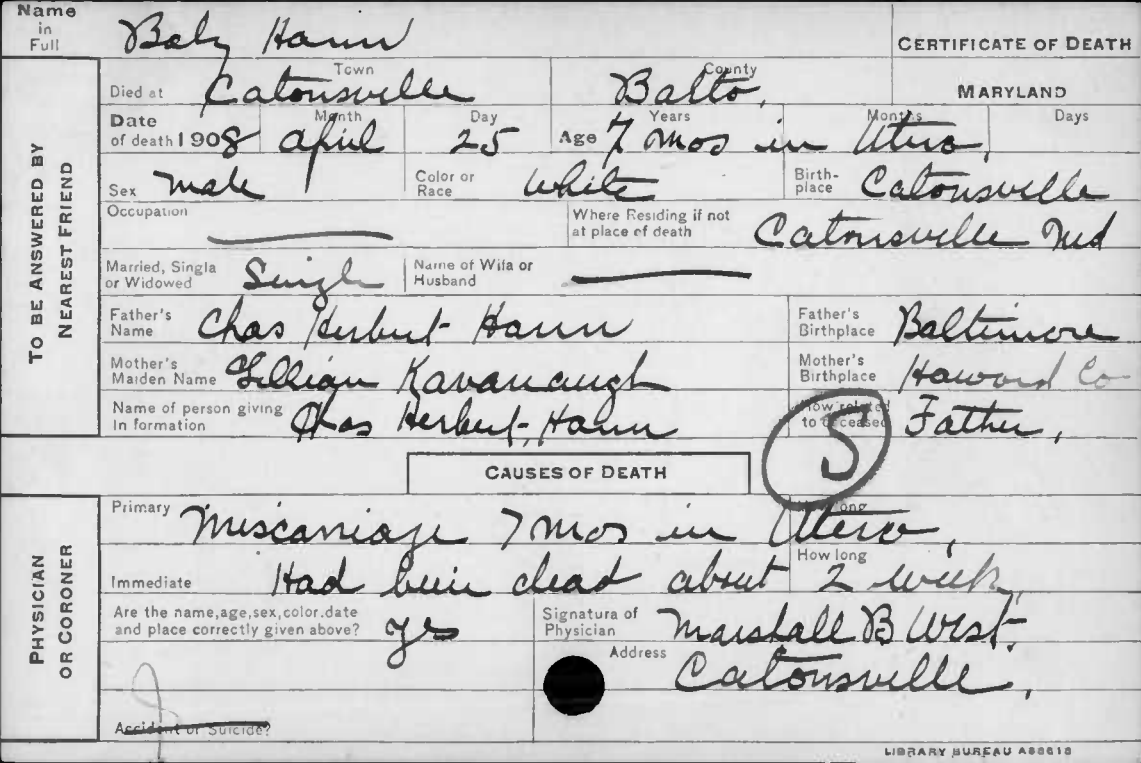 Name in Full Baby Hann
CERTIFICATE OF DEATH
TO BE ANSWERED BY NEAREST FRIEND
Died at Town Catonsville County Balto. MARYLAND
Date of death 1908 Month April Day 25 Age Years Months Days 7 mos in Utero,
Sex Male Color or Race White Birthplace Catonsville
Occupation — Where Residing if not at place of death Catonsville Md
Married, Single or Widowed Single Name of Wife or Husband —
Father's Name Chas Herbert Hann Father's Birthplace Baltimore
Mother's Maiden Name Lillian Kavanaugh Mother's Birthplace Howard Co
Name of person giving In formation Chas Herbert Hann How related to deceased Father,
5
CAUSES OF DEATH
PHYSICIAN OR CORONER
Primary Miscarriage 7 mos in Utero, How long
Immediate Had been dead about How long 2 week,
Are the name, age, sex, color, date and place correctly given above? yes Signature of Physician Marshall B West.
Address Catonsville,
Accident or Suicide?
LIBRARY BUREAU A88618